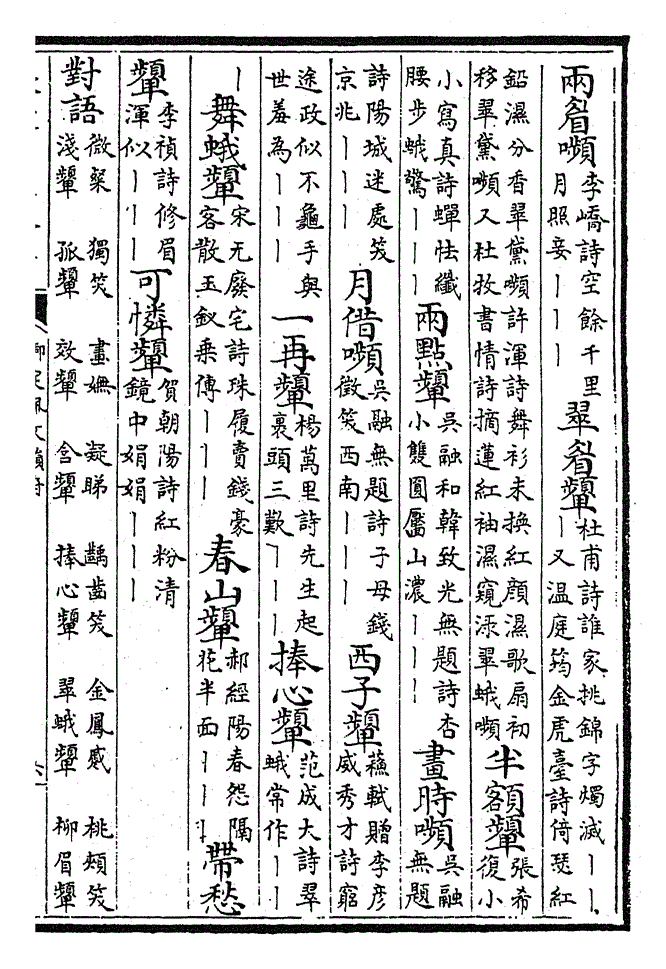 兩眉嚬李嶠詩空餘千里月照妾丨丨丨翠眉顰杜甫詩誰家挑錦字燭滅丨丨丨又温庭筠金虎臺詩倚瑟紅
鉛濕分香翠黛嚬許渾詩舞衫未換紅顏濕歌扇初移翠黛嚬又杜牧書情詩摘蓮紅袖濕窺渌翠蛾嚬半額顰張希復小
小寫真詩蟬怯纖腰步蛾驚丨丨丨兩點顰吳融和韓致光無題詩杏小雙圓壓山濃丨丨丨畫時嚬吳融無題
詩陽城迷處笑京兆丨丨丨月借嚬吳融無題詩子母錢徵笑西南丨丨丨西子顰蘇軾贈李彦威秀才詩窮
途政似不龜手與世羞為丨丨丨一再顰楊萬里詩先生起裹頭三歎丨丨丨捧心顰范成大詩翠蛾常作丨丨
丨舞蛾顰宋无廢宅詩珠履賣錢豪客散玉釵乘傳丨丨丨春山顰郝經陽春怨隔花半面丨丨丨帶愁
顰李禎詩修眉渾似丨丨丨可憐顰賀朝陽詩紅粉清鏡中娟娟丨丨丨
對語微粲淺顰 獨笑孤顰 畫嫵效顰 凝睇含顰 齲齒笑捧心顰 金鳳蹙翠蛾顰 桃頰笑柳眉顰